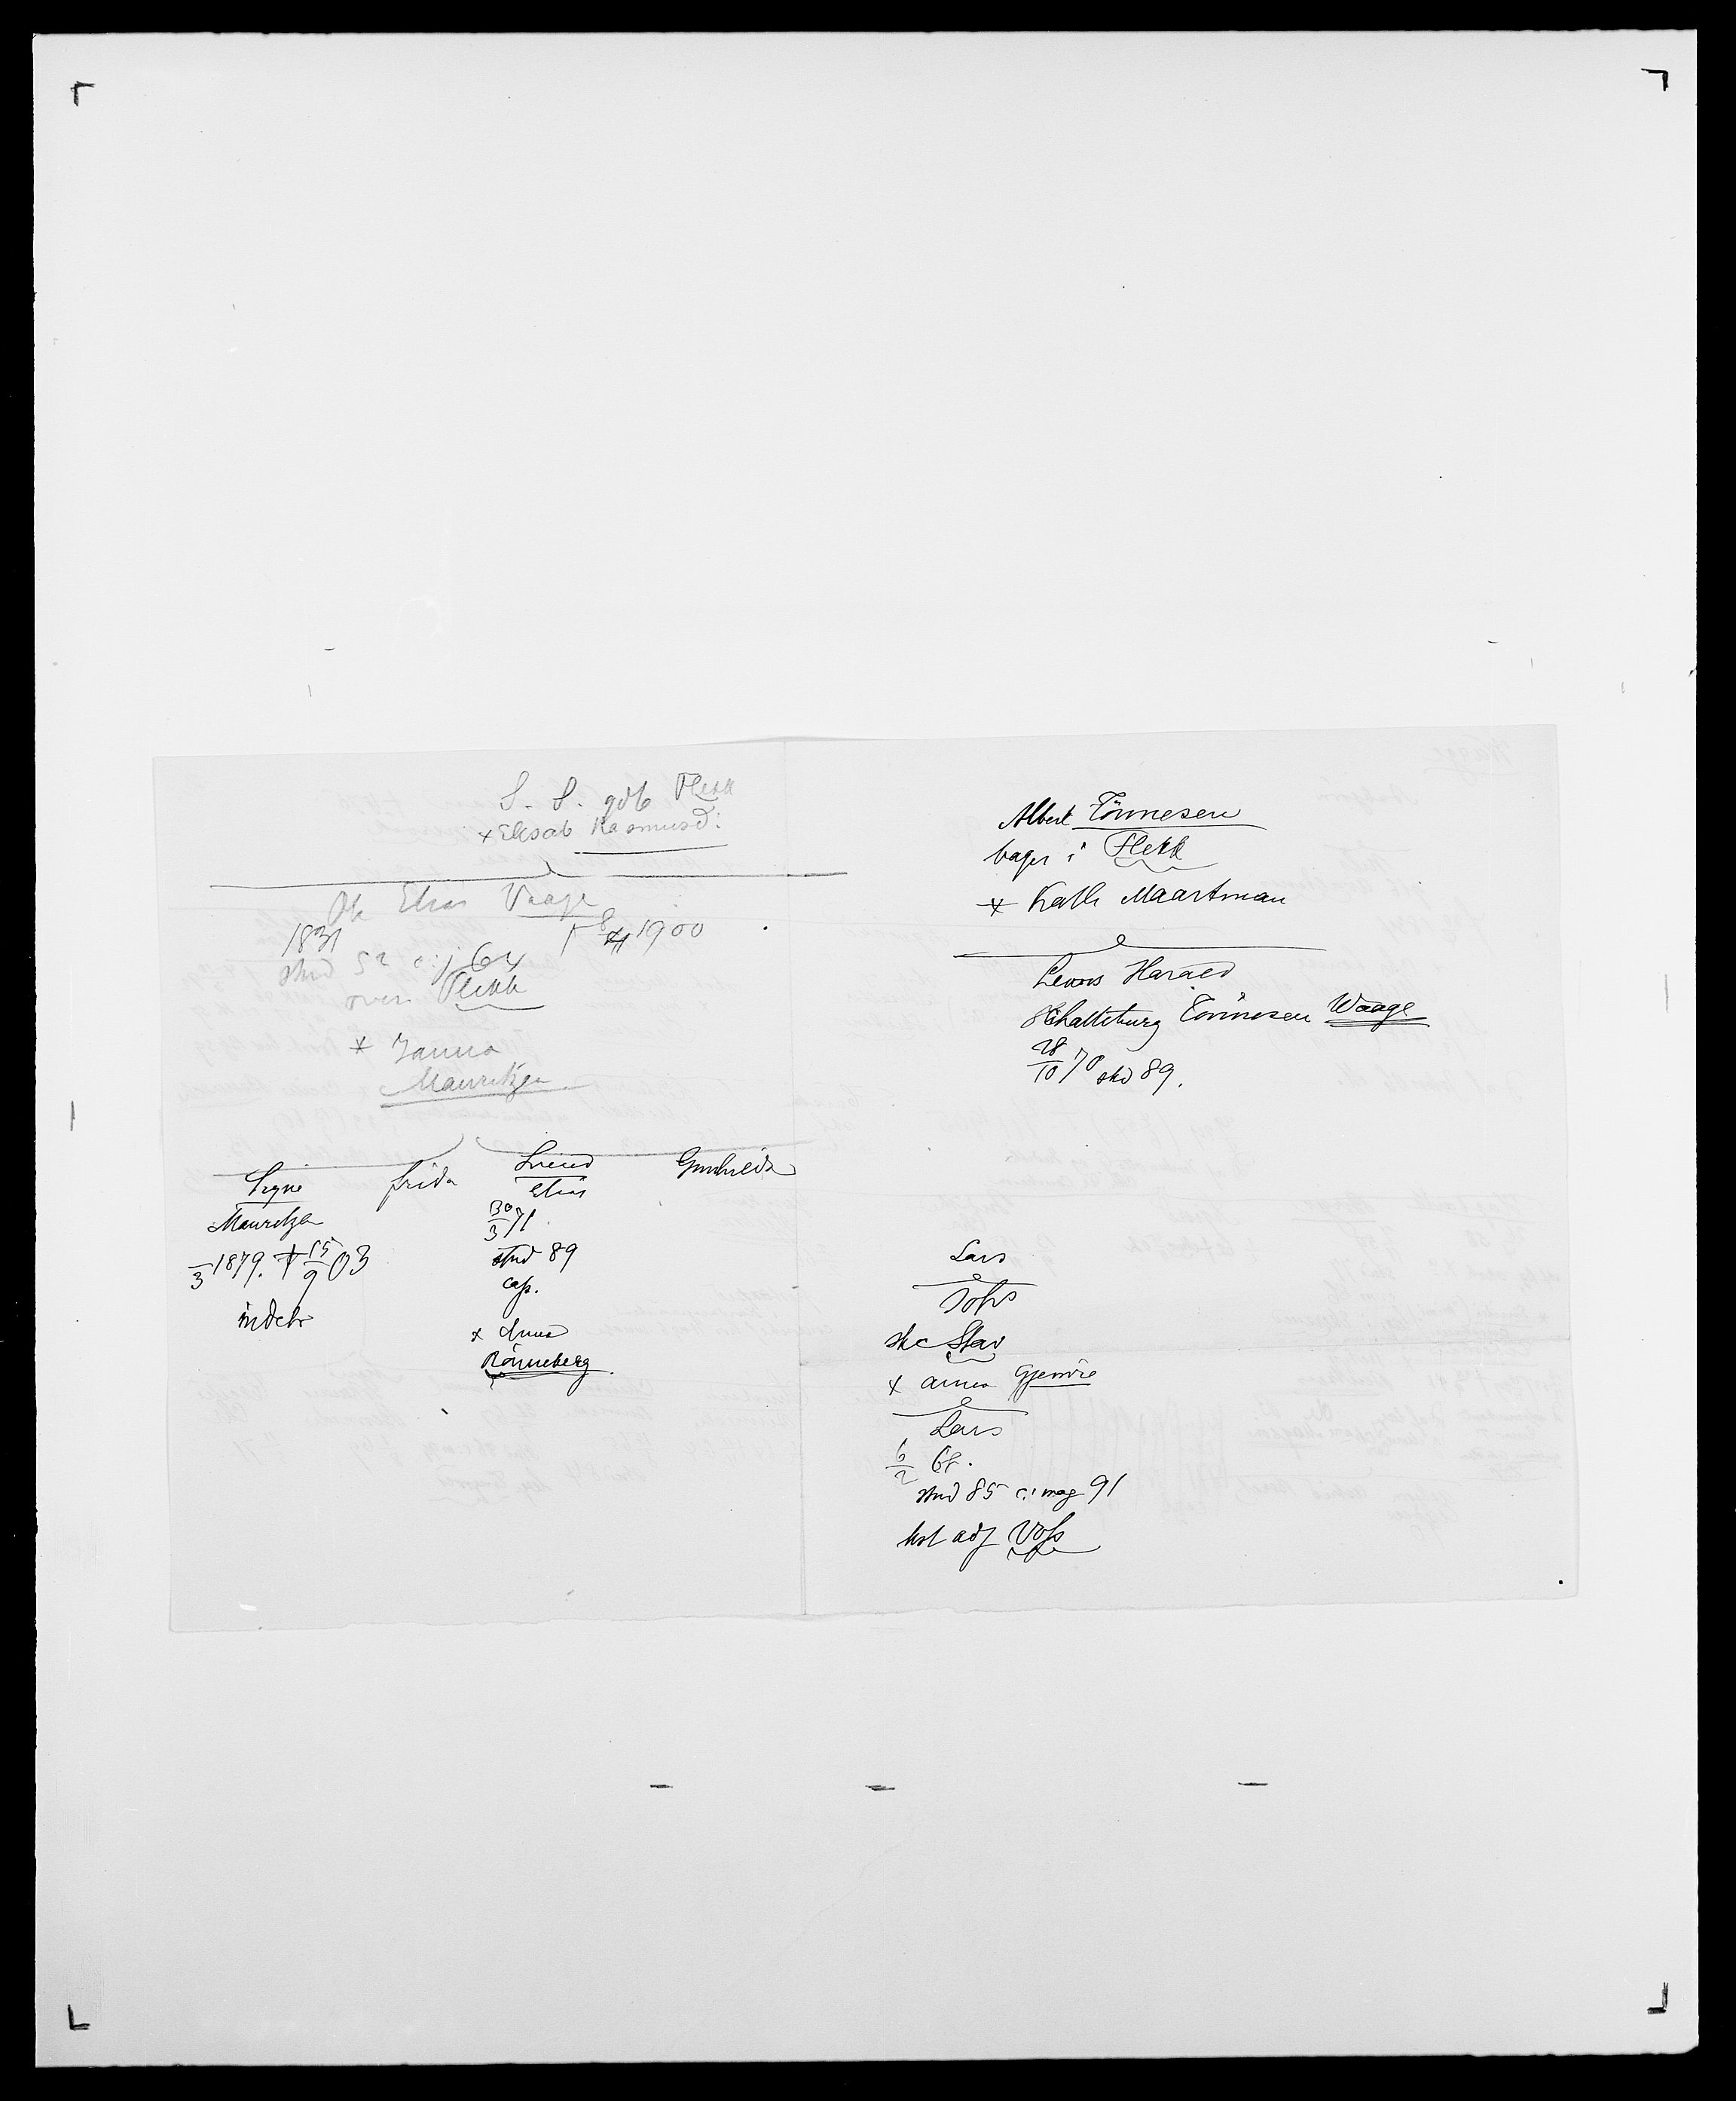 S. S. gdb Flekk
x Elisab Rasmusd:
Ole Elias Vaage
1831 † 8/11 1900
stud 52 c: j 64
overs Flekk
x Janna
Mauritzen
Signe
Mauritzen
/3 1879. † 15/9 03
indebr
Frida
Svend
Elias
30/3 71.
stud 89
cap.
x Anna
Rönneberg
Gunhilda
Albert Tönnesen
bager i Flekk
x Kath Maartman
Harald
Tönnesen Waage
28/10 70 std 89.
Lars
Johs
skc Stav
x Anna Gjemre
Lars
6/2 68.
stud 85 c: mag 91
bst adj Voss